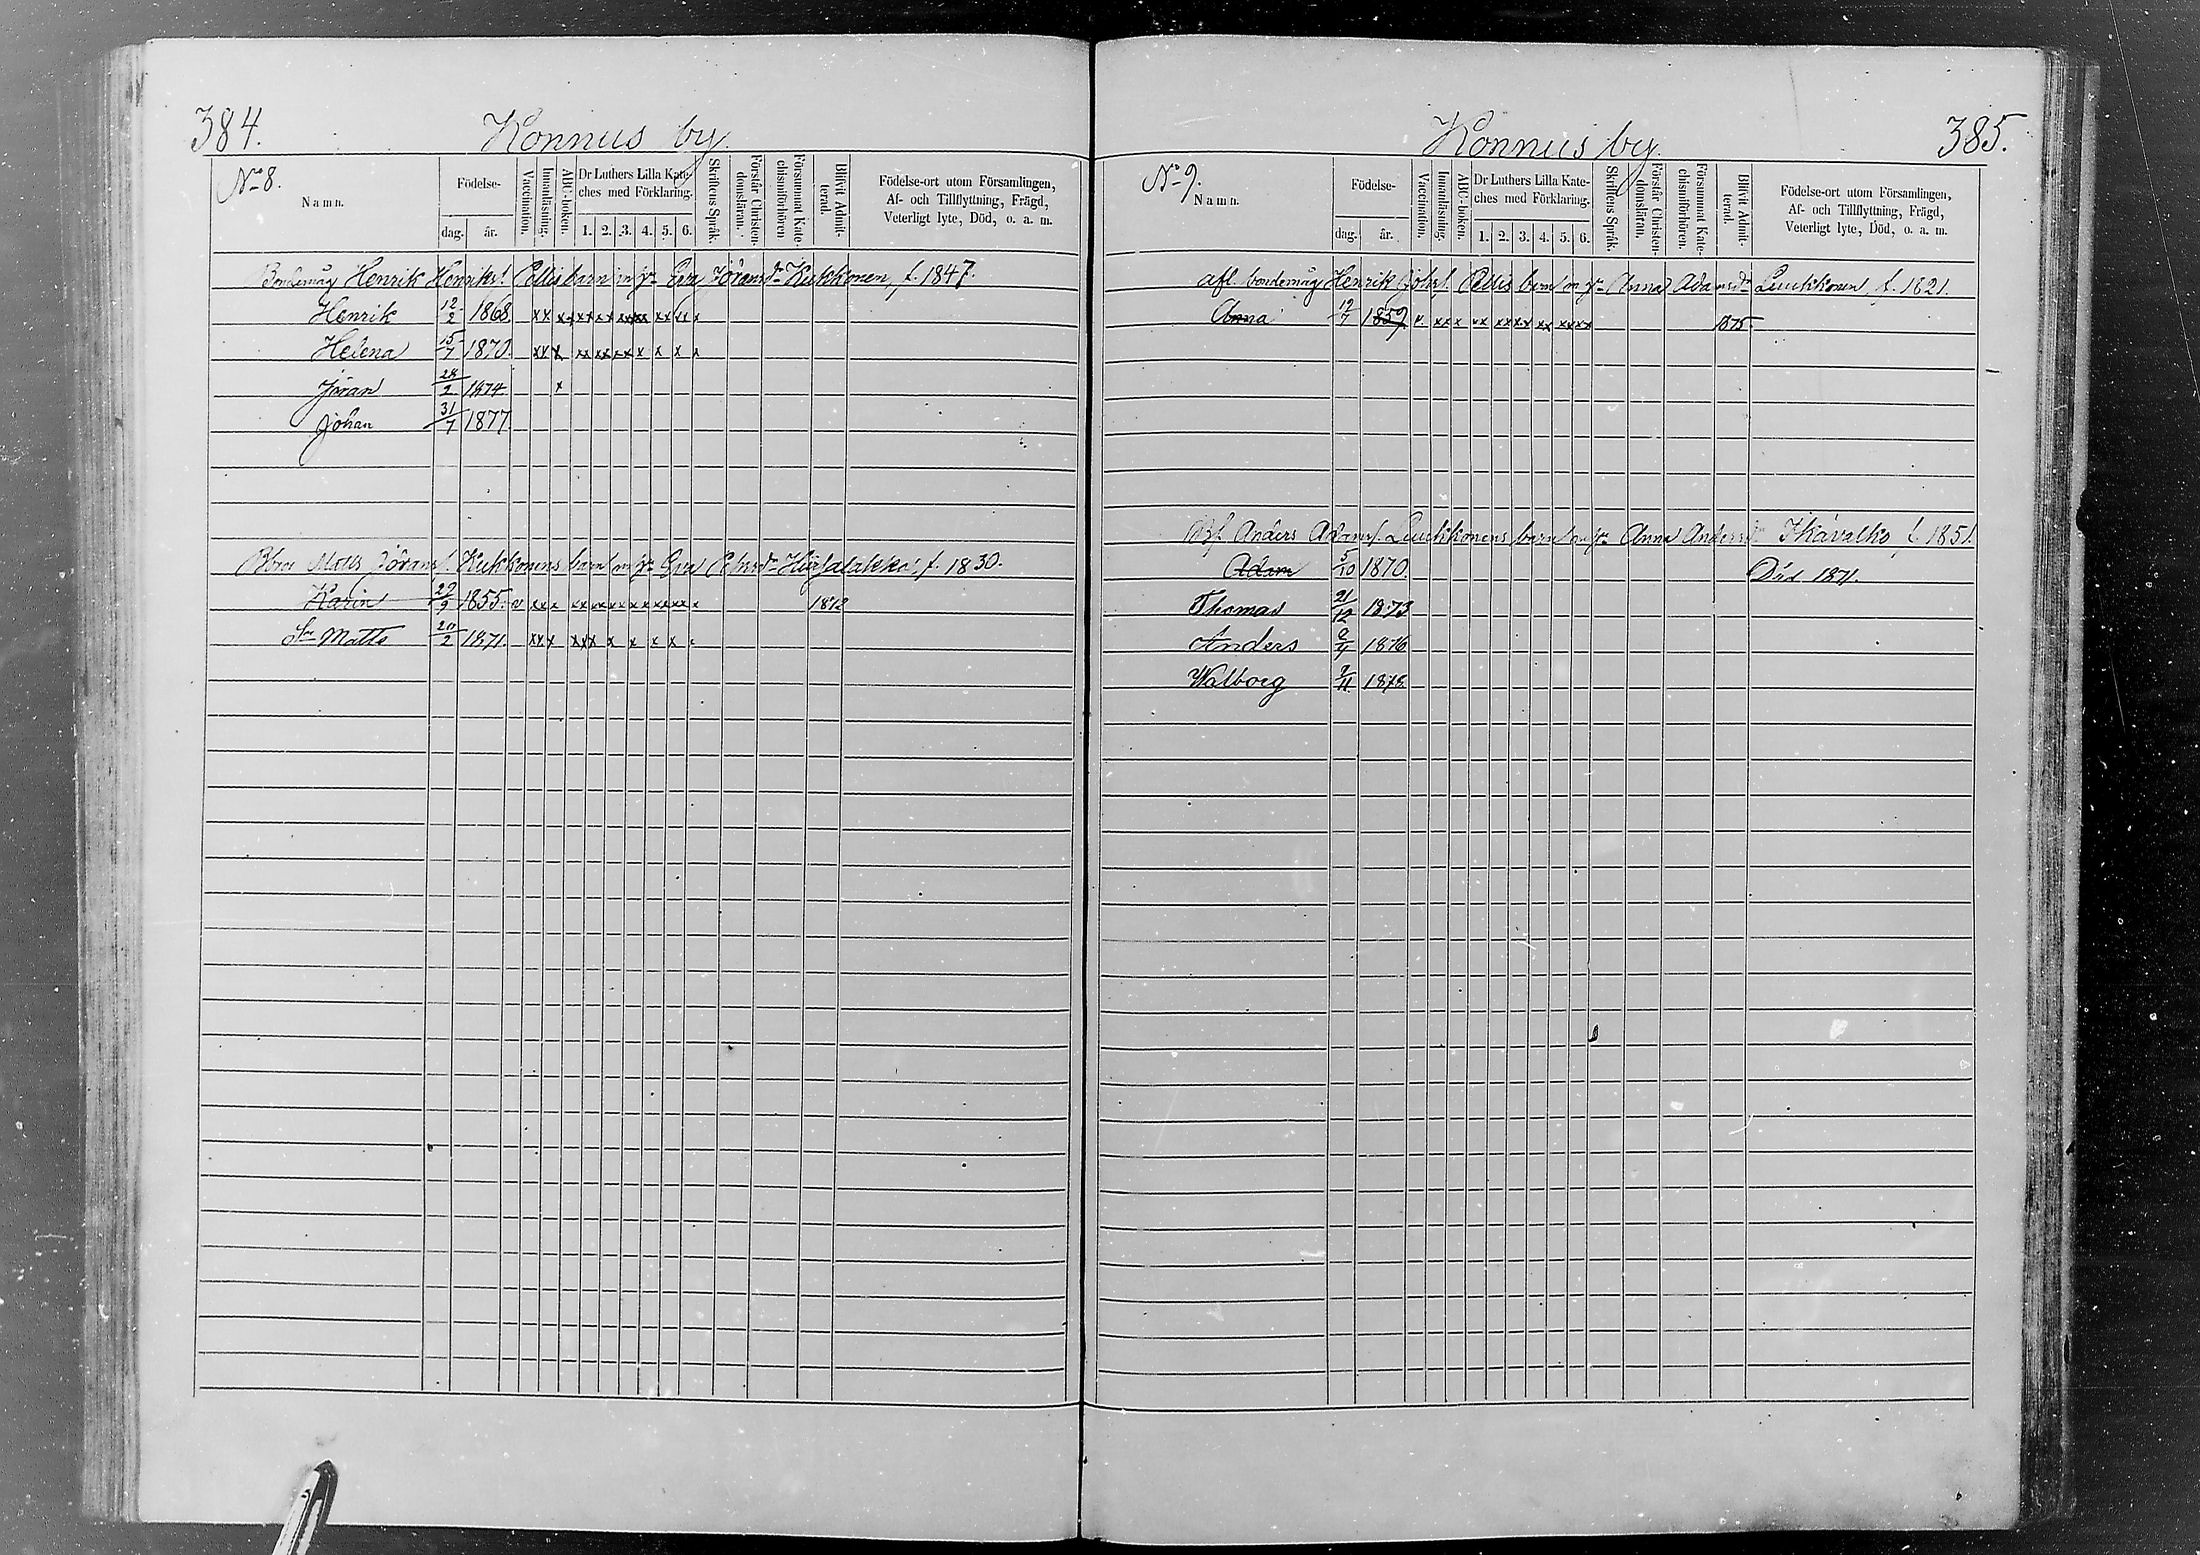 384.
Konnus by.
No 8.
Namn.
Födelse-
dag. år.
Vaccination.
Innanläsning.
ABC-boken.
Dr Luthers Lilla Kate-
ches med Förklaring.
1. 2. 3. 4. 5. 6.
Skriftens Språk.
Förstår Christen-
domsläran.
Försummat Kate-
chismiförhören
Blifvit Admit-
terad.
Födelse-ort utom Församlingen,
Af- och Tillflyttning, Frägd,
Veterligt lyte, Död, o. a. m.
Bondemåg Henrik Henrikss. Pellis barn m. h. Eva Jöransdr Kukkonen, f. 1847.
Henrik 12/2 1868. xx x x xx xx xxxx xx xx x
Helena 15/7 1870. xx x xx xx xx x x x x
Jöran 28/2 1874 x
Johan 31/7 1877
Matts Jöranss. Kukkonens barn m. h. Eva f. 1830.
Karin 29/9 1855. v xx x xx xx xx xx xx xx x 1872
Son Matts 20/2 1871. xx x xxx x x x x
385.
Konnus by.
No 9.
Namn.
Födelse-
dag. år.
Vaccination.
Innanläsning.
ABC-boken.
Dr Luthers Lilla Kate-
ches med Förklaring.
1. 2. 3. 4. 5. 6.
Skriftens Språk.
Förstår Christen-
domsläran.
Försummat Kate-
chismiförhören.
Blifvit Admit-
terad.
Födelse-ort utom Församlingen,
Af- och Tillflyttning, Frägd,
Veterligt lyte, Död, o. a. m.
Afl. bondemåg Henrik Johss. Pellis barn m. h. Anna Adamsdr Luukkonen f. 1821.
Anna 19/7 1859 v. xx x xx xx xx xx xxxx 1875.
Anders Adamss. Luukkonens barn m. h. Anna Andersdr Ikävalko f. 1851.
Adam 5/10 1870. Död 1871.
Thomas 21/12 1873
Anders 1876
Walborg 1878